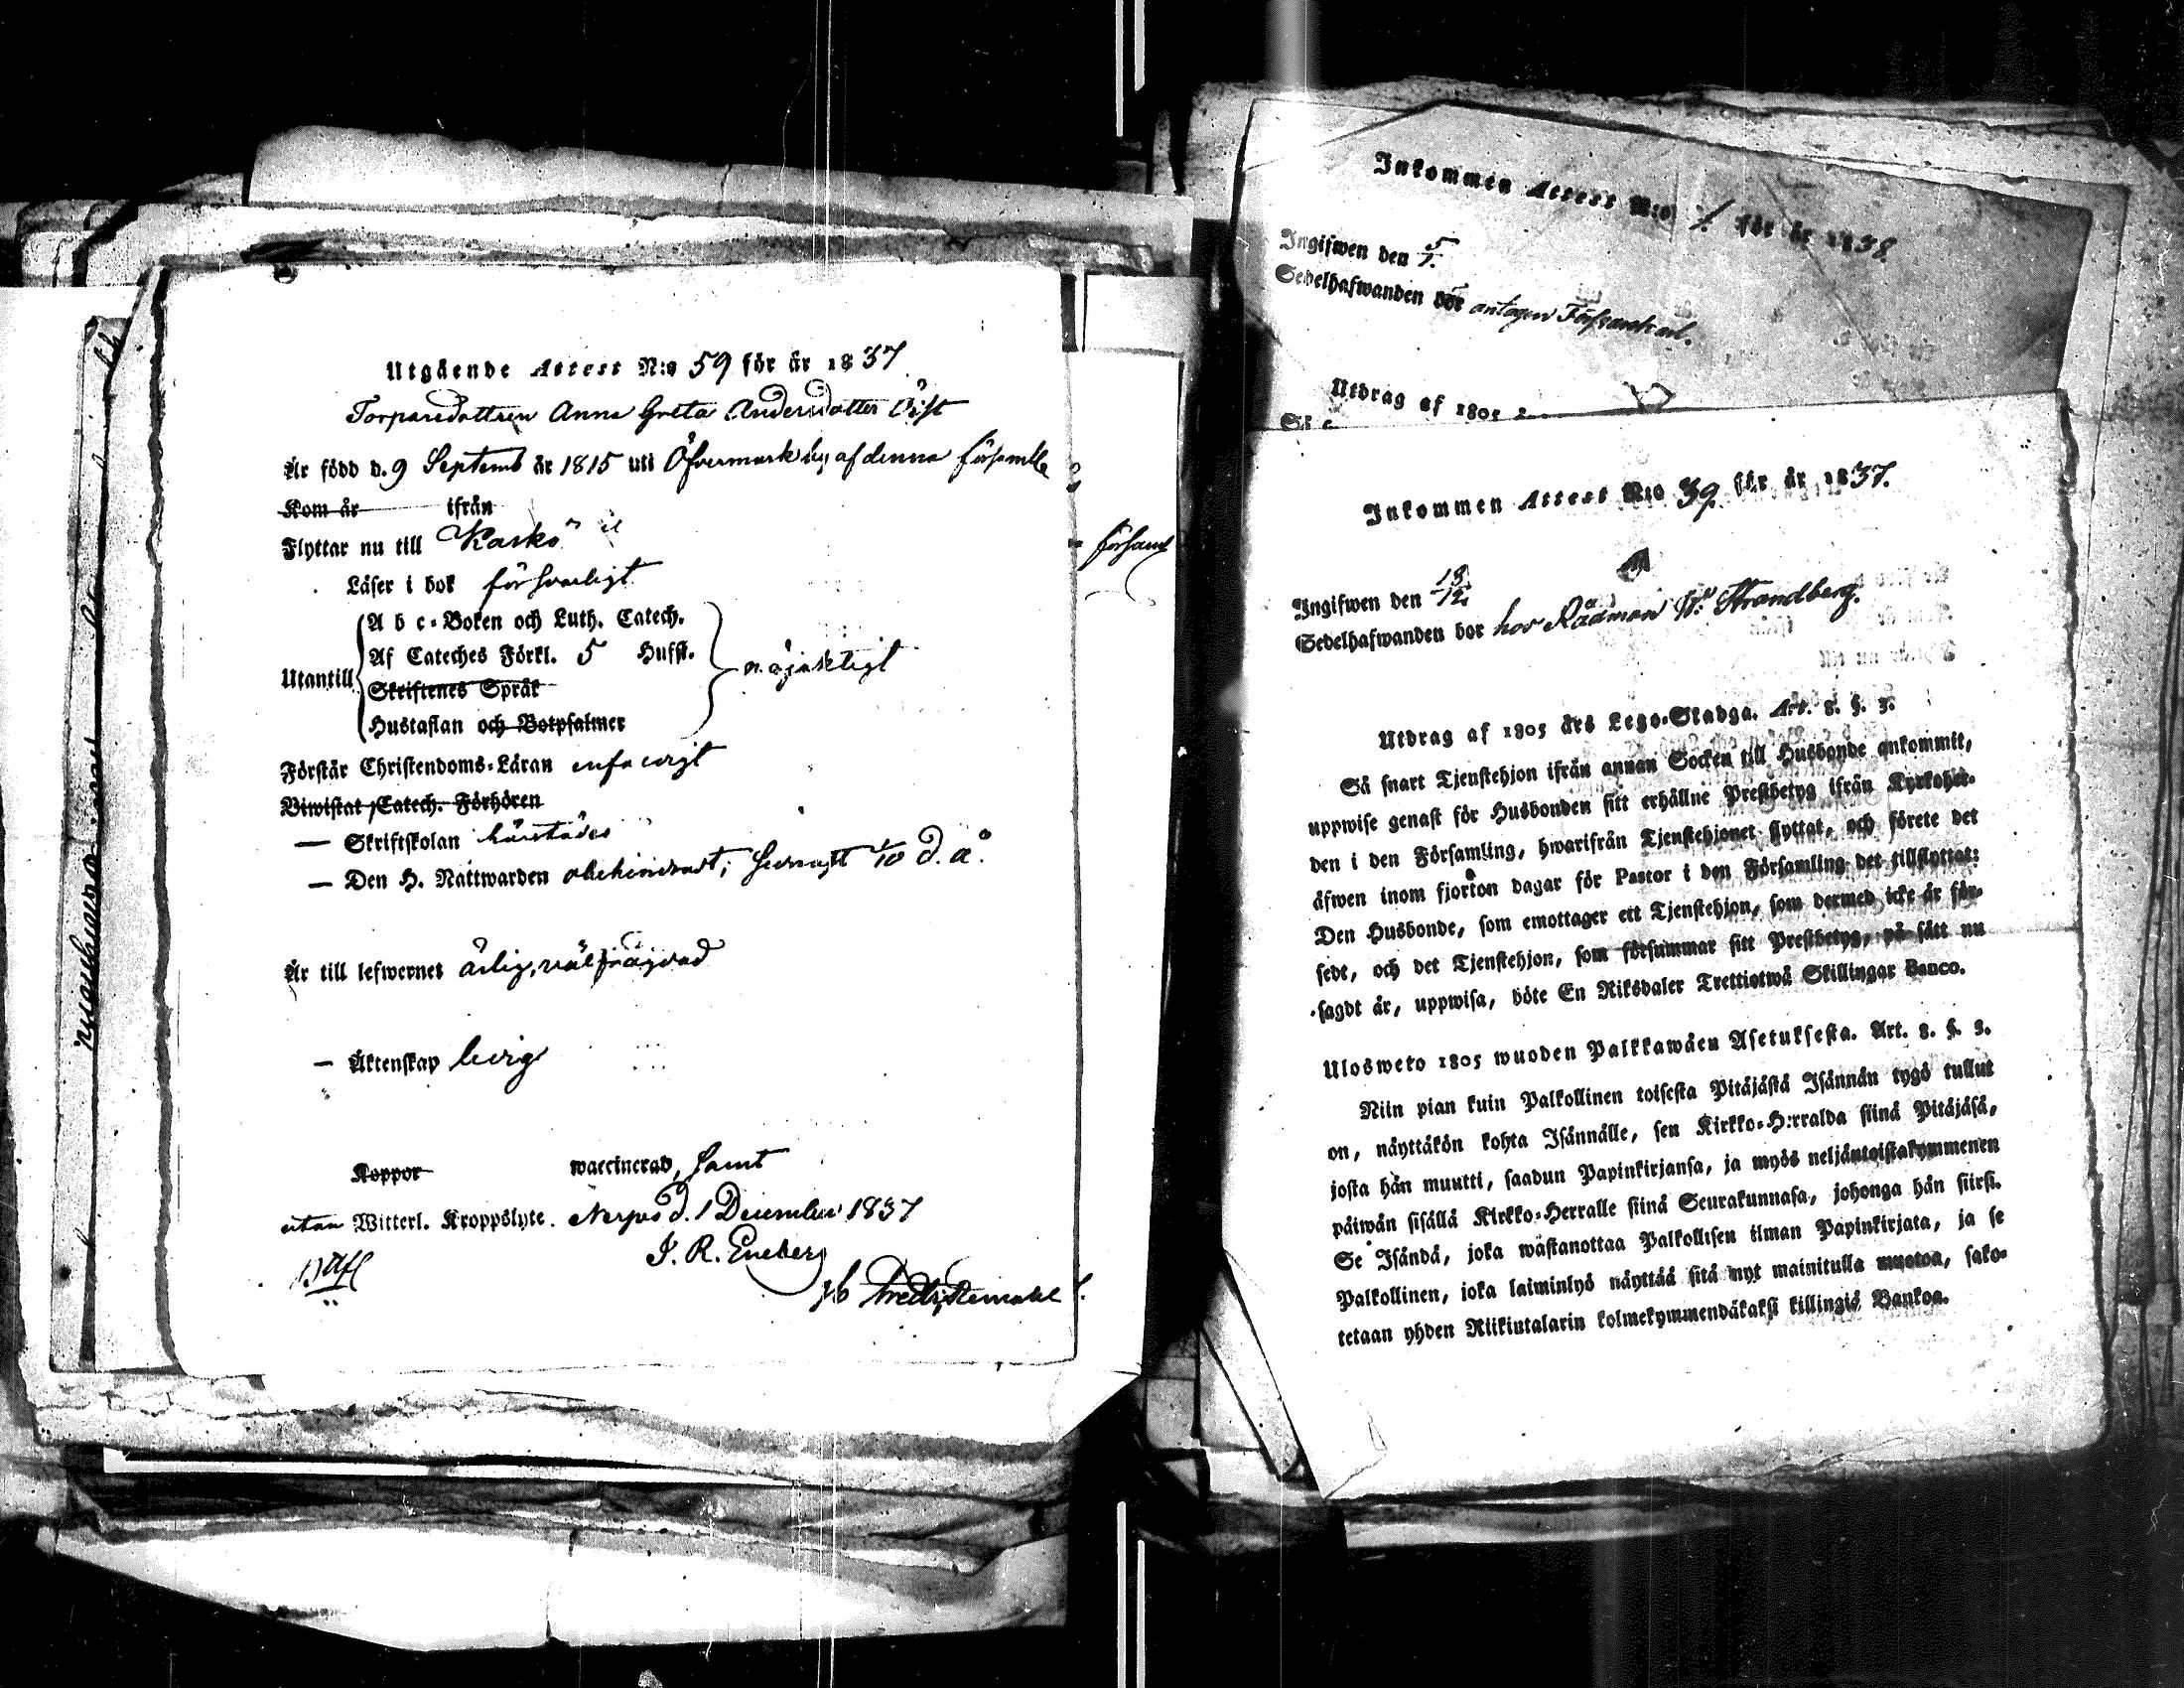 Utgående Attest N:o 59 för år 1837
Torparedottren Anna Greta Andersdotter Öist
Är född d. 9 Septemb år 1815 uti Öfvermark by af denna församlle
Kom år ifrån
Flyttar nu till Kaskö
Läser i bok försvarligt
A b c-Boken och Luth. Catech.
Af Cateches Förkl. 5 Hufst.
Utantill nöjaktigt
Skriftenes Språk
Hustaflan och Botpsalmer
Förstår Christendoms-Läran enfaldigt
Biwistat Catech. Förhören
— Skriftskolan härstädes
— Den H. Nattwarden obehindrat; senast 1/10 d. å.
Är till lefwernet ärlig, väl frägdad
— Äktenskap ledig
Koppor waccinerad, samt
utan Witterl. Kroppslyte. Nerpes d. 1 December 1837
I. R. Eneberg
församl
Inkommen Attest N:o 1. för år 1838
Ingifwen den 5/1.
Sedelhafwanden bor antagen
Utdrag af 1805
Så s
Inkommen Attest N:o 39 för år 1837.
Ingifwen den 18/12.
Sedelhafwanden bor hos Rådman Strandberg.
Utdrag af 1805 års Lego-Stadga. Art. 8. §. 3.
Så snart Tjenstehjon ifrån annan Socken till Husbonde ankommit,
uppwise genast för Husbonden sitt erhållne Prestbetyg ifrån Kyrkoher-
den i den Församling, hwarifrån Tjenstehjonet flyttat, och förete det
äfwen inom fjorton dagar för Pastor i den Församling det tillflyttat:
Den Husbonde, som emottager ett Tjenstehjon, som dermed icke är för-
sedt, och det Tjenstehjon, som försummar sitt Prestbetyg, på sätt nu
sagdt är, uppwisa, böte En Riksdaler Trettiotwå Skillingar Banco.
Ulosweto 1805 wuoden Palkkawäen Asetuksesta. Art. 8. §. 3.
Niin pian kuin Palkollinen toisesta Pitäjästä Isännän tygö tullut
on, näyttäkön kohta Isännälle, sen Kirkko-Herralda siinä Pitäjäsä,
josta hän muutti, saadun Papinkirjansa, ja myös neljäntoistakymmenen
päiwän sisällä Kirkko-Herralle siinä Seurakunnasa, johonga hän siirsi.
Se Isändä, joka wastanottaa Palkollisen ilman Papinkirjata, ja se
Palkollinen, joka laiminlyö näyttää sitä nyt mainitulla muotoa, sako-
tetaan yhden Riikintalarin kolmekymmendäkaksi killingiä Bankoa.